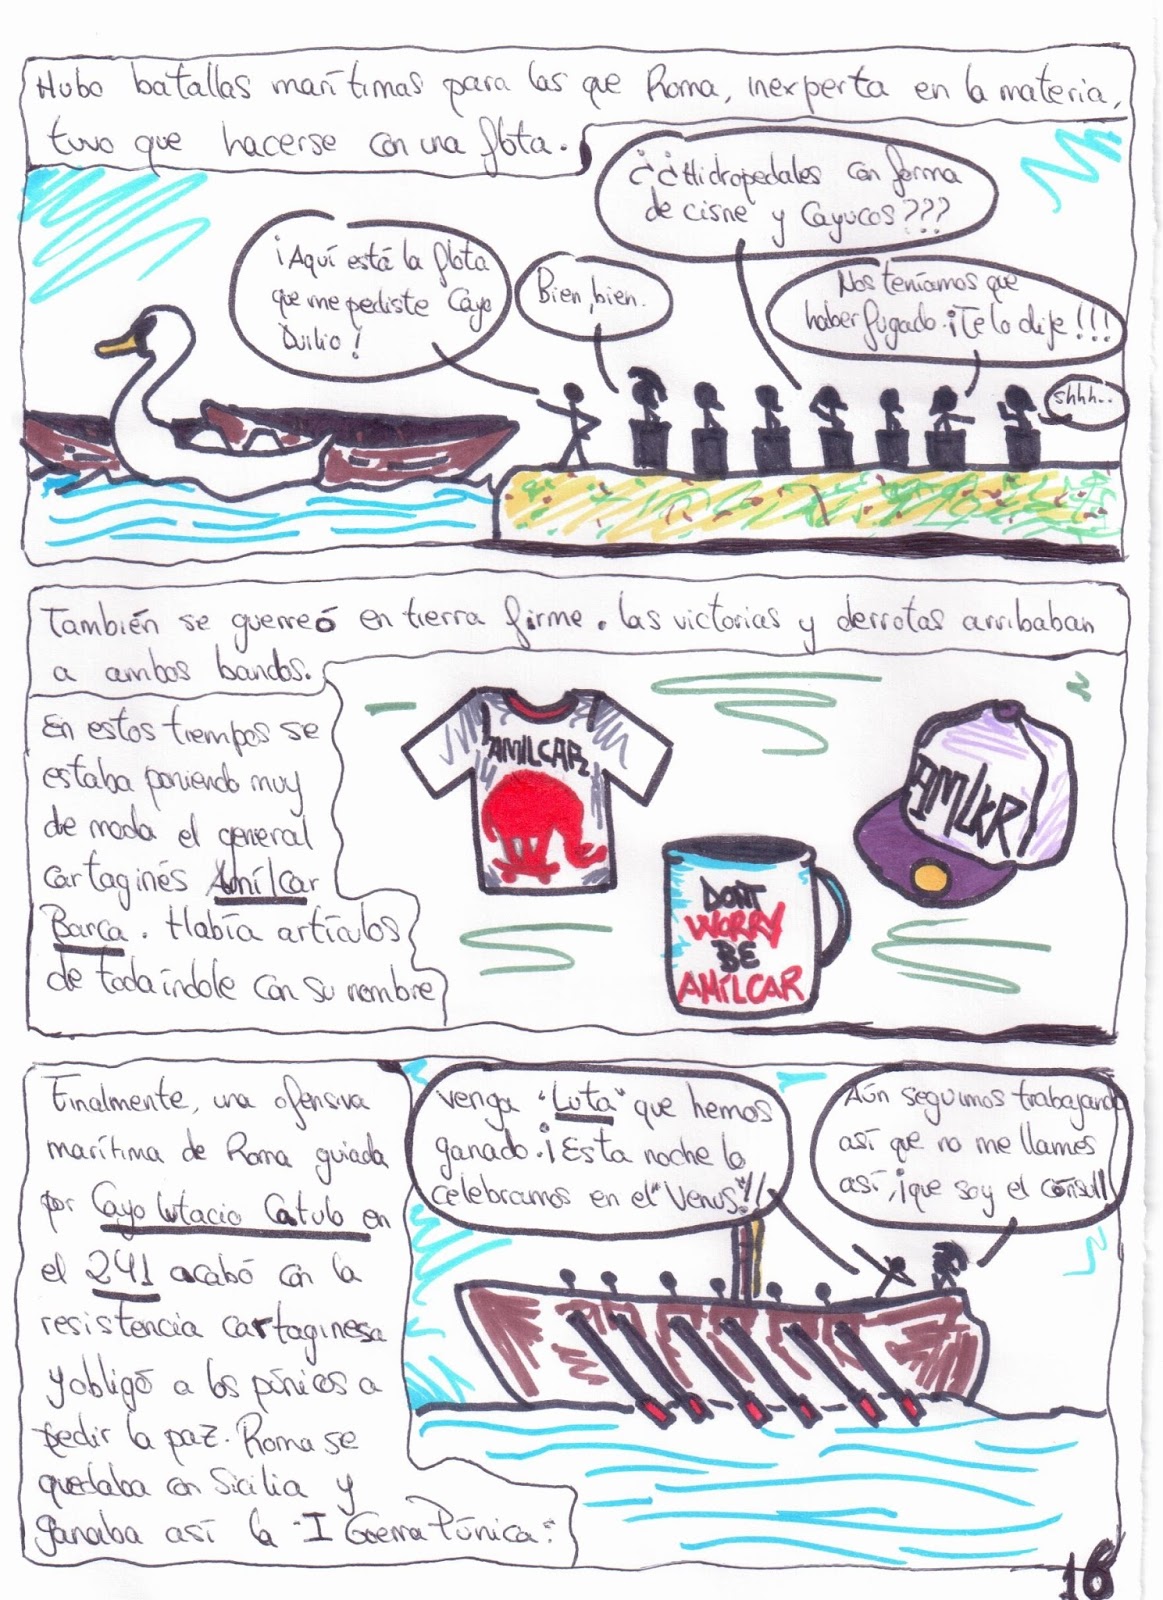 Hubo batallas marítimas para las que Roma, inexperta en la materia,
tuvo que hacerse con una flota.
¡Aquí está la flota
que me pediste Cayo
Duilio!
Bien, bien.
¿¿¿Hidropedales con forma
de cisne y Cayucos???
Nos teníamos que
haber fugado. ¡Te lo dije!!!
shhh..
También se guerreó en tierra firme. las victorias y derrotas arribaban
a ambos bandos.
En estos tiempos se
estaba poniendo muy
de moda el general
cartaginés Amílcar
Barca. Había artículos
de toda índole con su nombre
AMILCAR
AMLKR
DONT
WORRY
BE
AMÍLCAR
Finalmente, una ofensiva
marítima de Roma guiada
por Cayo Lutacio Catulo en
el 241 acabó con la
resistencia cartaginesa
y obligó a los púnicos a
pedir la paz. Roma se
quedaba con Sicilia y
ganaba así la "I Guerra Púnica".
Venga "Luta" que hemos
ganado. ¡Esta noche lo
celebramos en el "Venus"!!
Aún seguimos trabajando
así que no me llames
así, ¡que soy el cónsul!
16